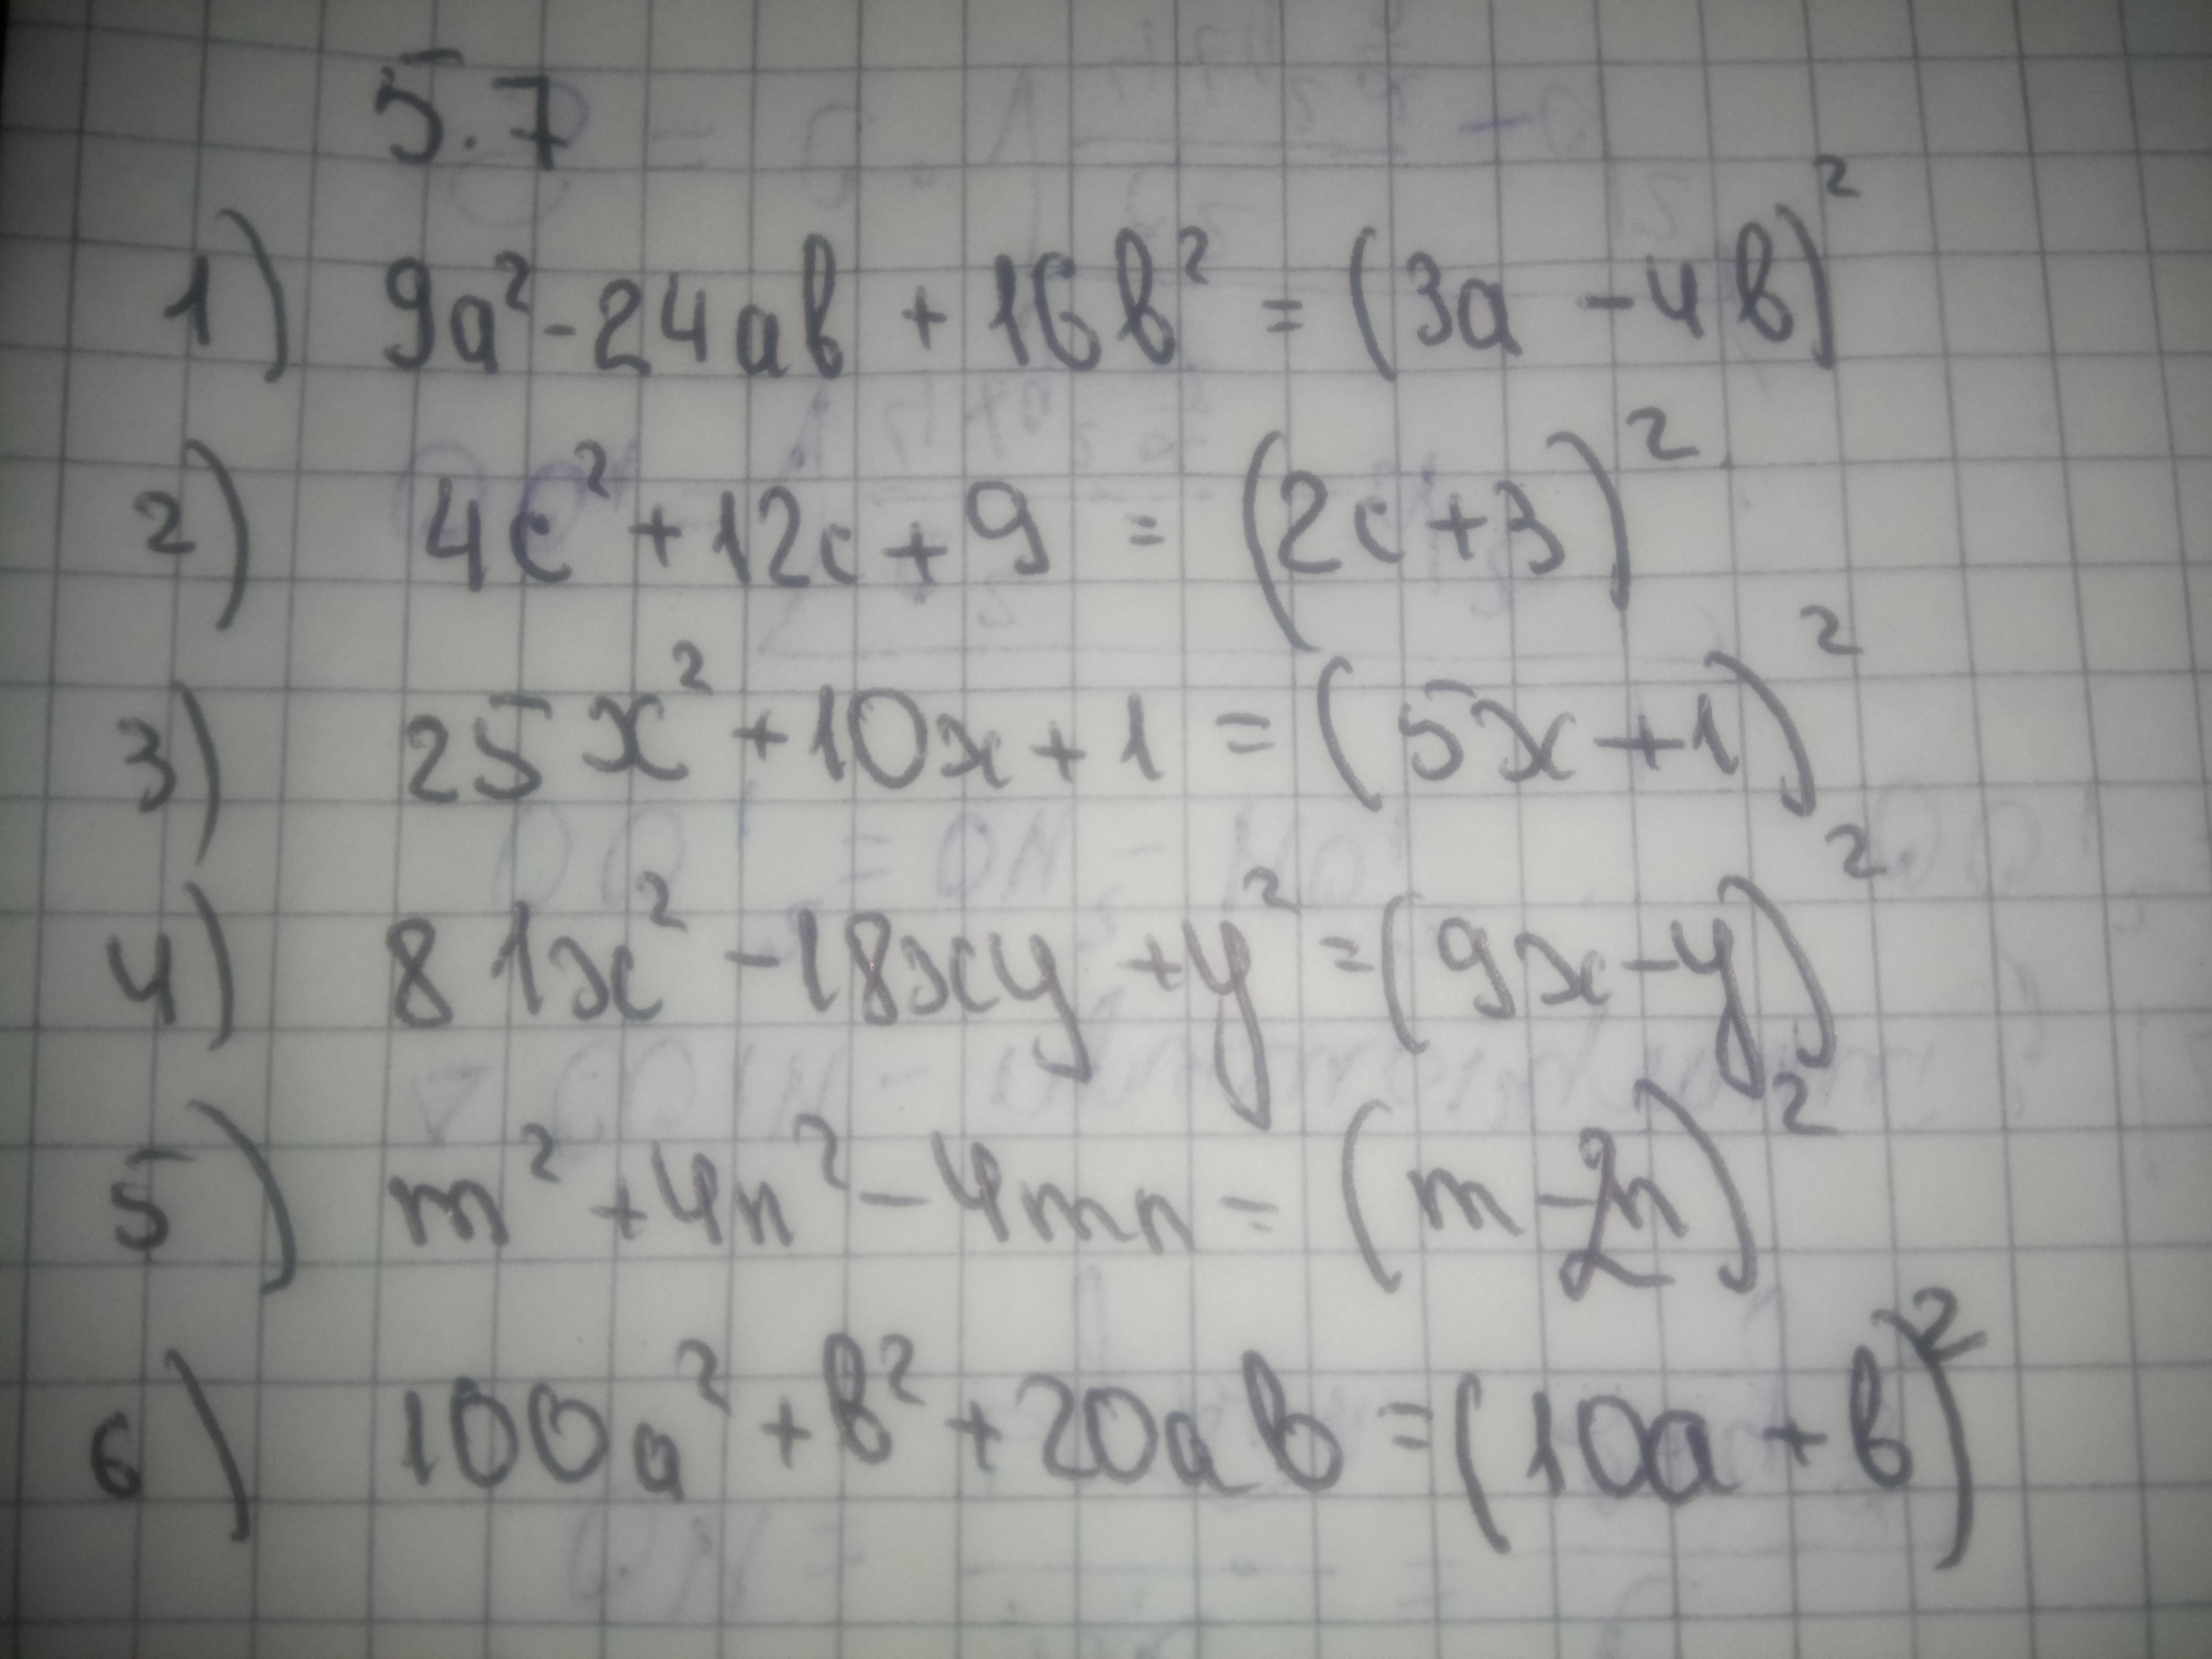 5.7
1) 9a² - 24ab + 16b² = (3a - 4b)²
2) 4c² + 12c + 9 = (2c + 3)²
3) 25x² + 10x + 1 = (5x + 1)²
4) 81x² - 18xy + y² = (9x - y)²
5) m² + 4n² - 4mn = (m - 2n)²
6) 100a² + b² + 20ab = (10a + b)²